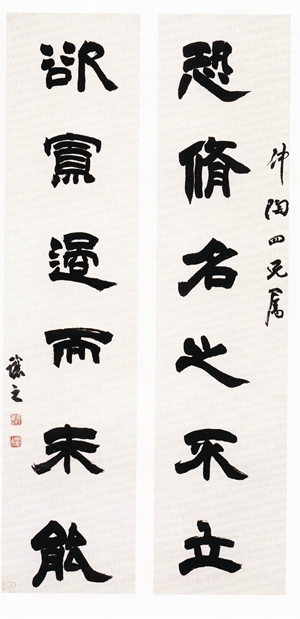 仲陶四兄属
恐脩名之不立
欲寡過而未能
讓之